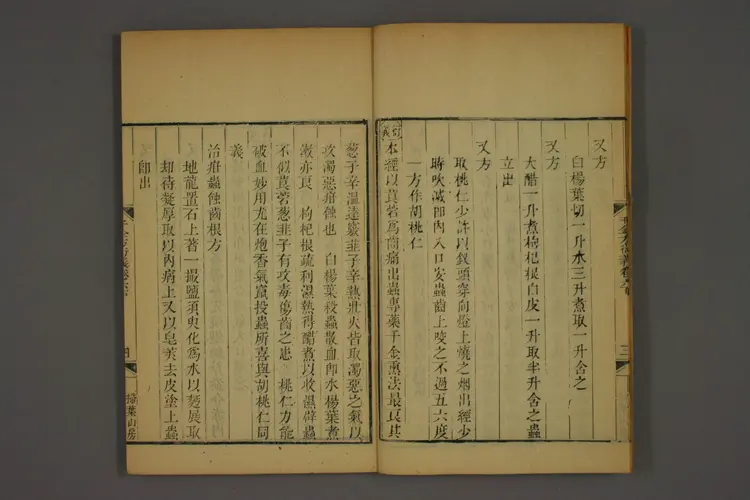 又方
白楊葉切一升水三升煮取一升含之
又方
大醋一升煮枸杞根白皮一升取半升含之蟲
立出
又方
取桃仁少許以釵頭穿向燈上燒之烟出經少
時吹滅即內入口安蟲齒上咬之不過五六度
一方作胡桃仁
衍義
本經以莨菪為齒痛出蟲專藥千金熏法最良其
葱子辛溫達竅韭子辛熱壯火皆取濁惡之氣以
攻濁惡疳蝕也 白楊葉殺蟲散血即水楊葉煮
漱亦良 枸杞根疏利濕熱得醋煮以收濕辟蟲
不似莨菪葱韭子有攻毒傷齒之患 桃仁力能
破血妙用尤在炮香氣竄投蟲所喜與胡桃仁同
義
治疳蟲蝕齒根方
地龍置石上著一撮鹽須臾化為水以麪展取
却待凝厚取以內病上又以皂莢去皮塗上蟲
即出
三
四
掃葉山房